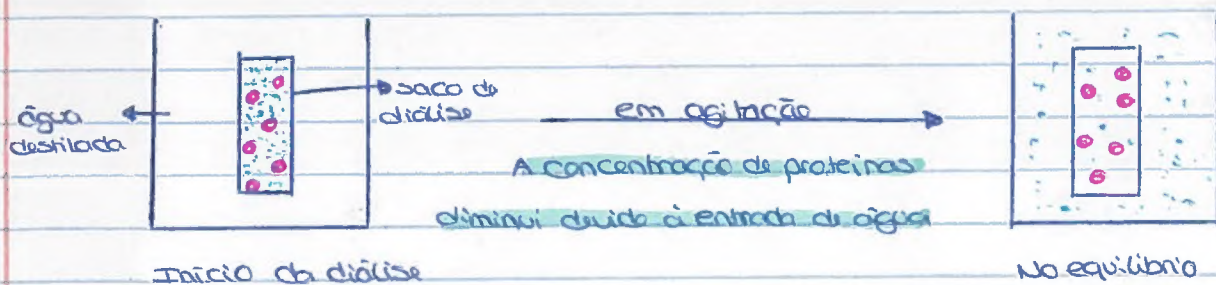 água
destilada
saco de
diálise
em agitação
A concentração de proteínas
diminui devido à entrada de água
Início da diálise
No equilíbrio